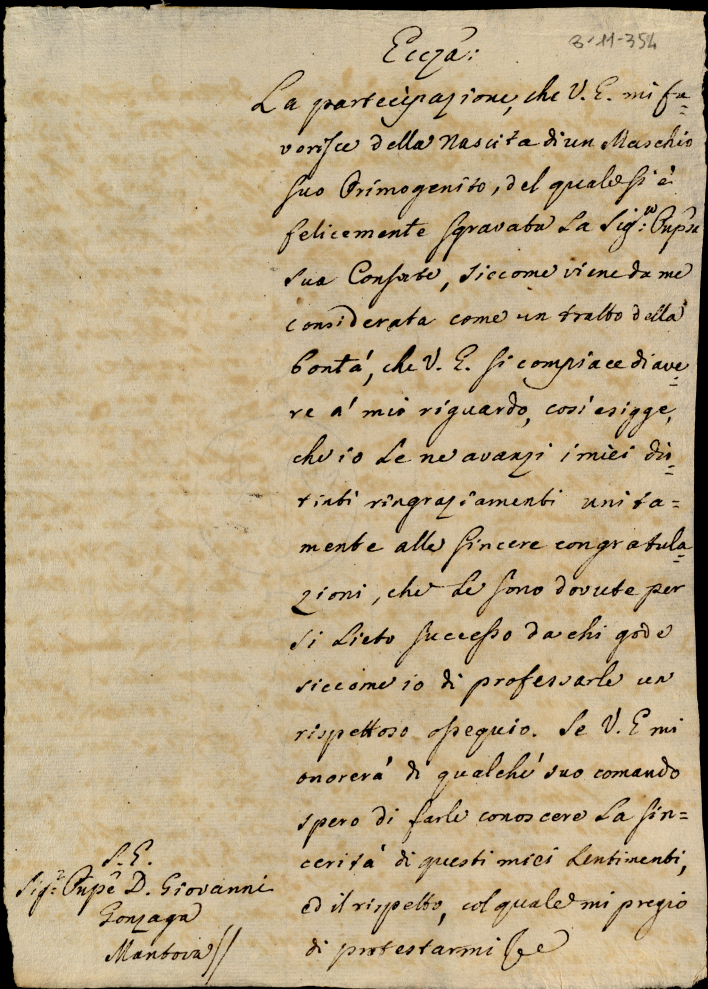 Eccza:
3-11-354
La partecipazione, che V. E. mi fa=
vorisce della Nascita di un Maschio
suo Primogenito, del quale si è
felicemente sgravata La Sig:ra Pnpssa
sua Consorte, siccome viene da me
considerata come un tratto della
bontà, che V. E. si compiace di ave=
re a' mio riguardo, così esigge,
che io Le ne avanzi i miei dis=
tinti ringraziamenti unita=
mente alle sincere congratula=
zioni, che Le sono dovute per
si Lieto successo da chi gode
siccome io di professarle un
rispettoso ossequio. Se V. E mi
onorerà di qualche suo comando
spero di farle conoscere La sin=
cerità di questi miei sentimenti,
ed il rispetto, col quale mi pregio
di protestarmi
S. E.
Sigr: Pnpe D. Giovanni
Gonzaga
Mantova//